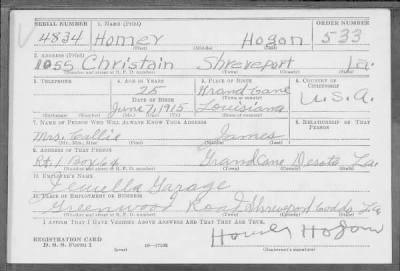 SERIAL NUMBER 1. NAME (Print) ORDER NUMBER
4834 Homer Hogan 533
(First) (Middle) (Last)
2. ADDRESS (Print)
1055 Christain Shreveport La.
(Number and street or R. F. D. number) (Town) (County) (State)
3. TELEPHONE 4. AGE IN YEARS 5. PLACE OF BIRTH 6. COUNTRY OF CITIZENSHIP
25 Grand Cane
DATE OF BIRTH (Town or county)
June 7, 1915 Louisiana U.S.A.
(Mo.) (Day) (Yr.) (State or country)
7. NAME OF PERSON WHO WILL ALWAYS KNOW YOUR ADDRESS 8. RELATIONSHIP OF THAT PERSON
Mrs. Callie James
(Mr., Mrs., Miss) (First) (Middle) (Last)
9. ADDRESS OF THAT PERSON
Rt. 1 Box 64 Grand Cane Desoto La.
(Number and street or R. F. D. number) (Town) (County) (State)
10. EMPLOYER'S NAME
Jewella Garage
11. PLACE OF EMPLOYMENT OR BUSINESS
Greenwood Road Shreveport Caddo La
(Number and street or R. F. D. number) (Town) (County) (State)
I AFFIRM THAT I HAVE VERIFIED ABOVE ANSWERS AND THAT THEY ARE TRUE.
REGISTRATION CARD
D. S. S. Form 1 (over) 16—17105 Homer Hogan
(Registrant's signature)